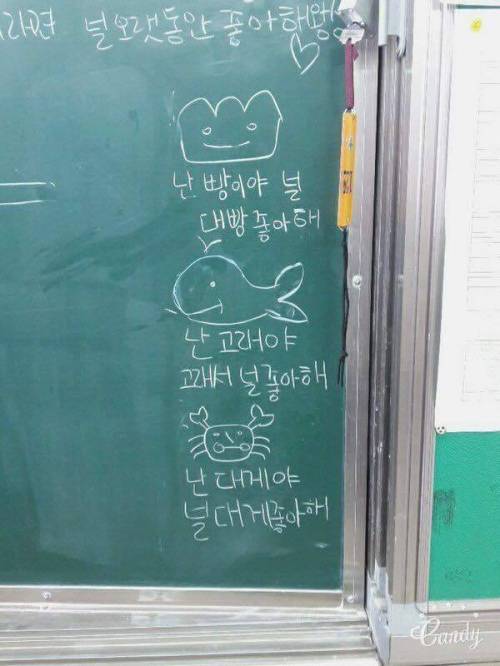 널 오랫동안 좋아해왕
난 빵이야 널
대빵 좋아해
난 고래야
고래서 널 좋아해
난 대게야
널 대게좋아해
Candy